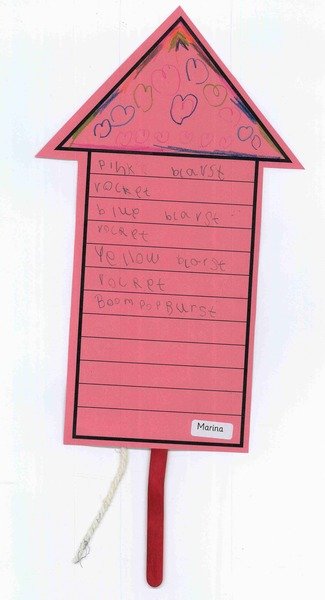 pink blarst
rocket
blue blarst
rocket
Yellow blarst
rocket
Boom pop Burst
Marina